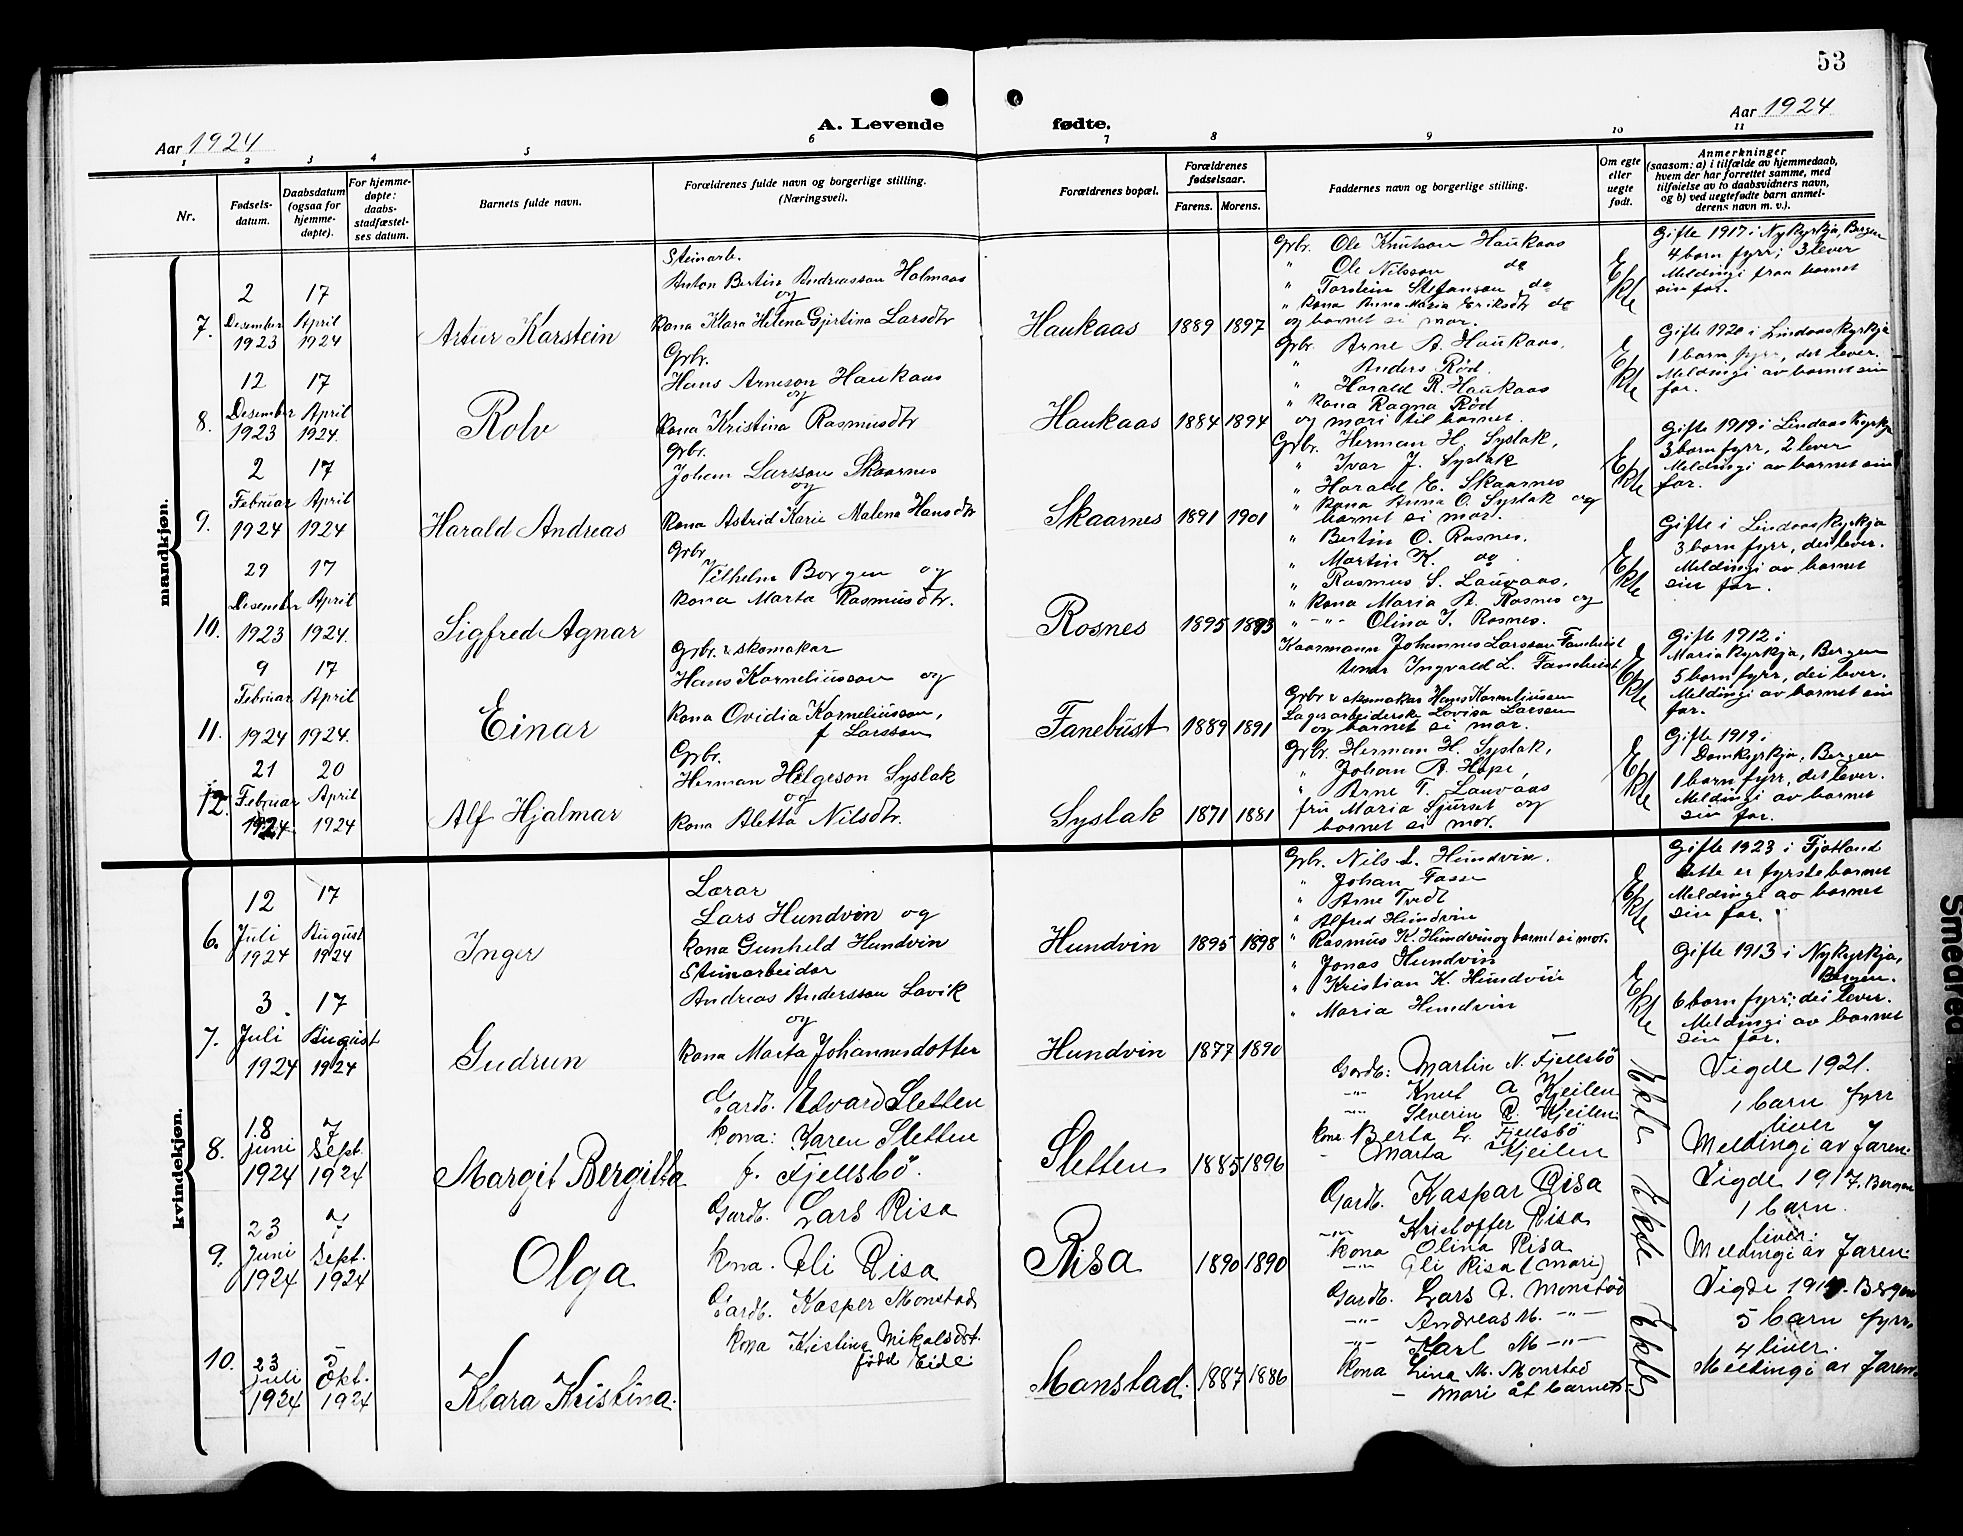 53
Aar 1924
A. Levende fødte.
Aar 1924
1 2 3 4 5 6 7 8 9 10 11
Nr.
Fødsels-
datum.
Daabsdatum
(ogsaa for
hjemme-
døpte).
For hjemme-
døpte:
daabs-
stadfæstel-
ses datum.
Barnets fulde navn.
Forældrenes fulde navn og borgerlige stilling.
(Næringsvei).
Forældrenes bopæl.
Forældrenes
fødselsaar.
Farens. Morens.
Faddernes navn og borgerlige stilling.
Om egte
eller
uegte
født.
Anmerkninger
(saasom: a) i tilfælde av hjemmedaab,
hvem der har forrettet samme, med
tilføielse av to daabsvidners navn,
og b) ved uegtefødte barn anmel-
derens navn m. v.).
mandkjøn.
7.
2
Desember
1923
17
April
1924
Artur Karstein
Steinarb.
Anton Bertin Andreassen Holmaas
og
kona Klara Helena Gjertina Larsdtr
Haukaas
1889 1897
Grbr. Ole Knutson Haukaas
" Ole Nilsson do
" Torstein Stefanson do
" kona Anna Maria Eriksdtr do
og barnet si mor.
Ekte
Gifte 1917 i Nykyrkja, Bergen
4 born fyrr; 3 lever
Meldingi fraa barnet
sin far.
8.
12
Desember
1923
17
April
1924.
Rolv
Grbr.
Hans Arneson Haukaas
og
kona Kristina Rasmusdtr
Haukaas
1884 1894
Grbr. Arne A. Haukaas,
" Anders Rød.
" Harald R. Haukaas
" kona Ragna Rød
og mori til barnet.
Ekte
Gifte 1920 i Lindaas kyrkja
1 barn fyrr, det lever.
Meldingi av barnet sin
far.
9.
2
Februar
1924
17
April
1924
Harald Andreas
Grbr.
Johan Larsson Skaarnes
og
kona Astrid Karie Malena Hansdtr
Skaarnes
1891 1901
Grbr. Herman H. Syslak,
" Ivar J. Syslak
" Harald E. Skaarnes
" kona Anna O. Syslak og
barnet si mor.
Ekte
Gifte 1919 i Lindaas kyrkja
3 born fyrr, 2 lever
Meldingi av barnet sin
far.
10.
29
Desember
1923
17
April
1924.
Sigfred Agnar
Grbr.
Vilhelm Borgen og
kona Marta Rasmusdtr.
Rosnes
1895 1893
" Bertin O. Rosnes.
" Martin K. og
" Rasmus S. Lauvaas,
" kona Maria A. Rosnes og
" -"- Olina I. Rosnes.
Ekte
Gifte i Lindaas kyrkja
3 born fyrr, dei lever.
Meldingi av barnet
sin far.
11.
9
Februar
1924
17
April
1924.
Einar
Grbr. & skomakar
Hans Korneliusson og
kona Ovidia Korneliusson,
f Larsson
Fanebust
1889 1891
Kaarmann Johannes Larsson Fanebust
Ingvald L. Fanebust
Grbr & skomakar Hans Korneliussen
Lagerarbeiderske Lovisa Larsen
og barnet si mor.
Ekte
Gifte 1912 i
Mariakyrkja, Bergen
5 born fyrr, dei lever.
Meldingi av barnet sin
far.
12.
21
Februar
1924.
20
April
1924
Alf Hjalmar
Grbr.
Herman Helgeson Syslak
og
kona Aletta Nilsdtr.
Syslak
1871 1881
Grbr. Herman H. Syslak,
" Johan A. Hope,
" Arne T. Lauvaas
fru Maria Sjurset og
barnet si mor.
Ekte
Gifte 1919 i
Domkyrkja, Bergen
1 barn fyrr, det lever.
Meldingi av barnet
sin far.
kvindekjøn.
6.
12
Juli
1924
17
August
1924
Inger
Lærar
Lars Hundvin og
kona Gunheld Hundvin
Hundvin
1895 1898
Grbr. Nils L. Hundvin.
" Johan Fasse
" Arne Tvedt
" Alfred Hundvin
" Rasmus K. Hundvin og barnet si mor.
Ekte
Gifte 1923 i Fjotland
Dette er fyrste barnet
Meldingi av barnet
sin far.
7.
3.
Juli
1924
17
August
1924
Gudrun
Steinarbeidar
Andreas Andersson Lavik
og
kona Marta Johannesdotter
Hundvin
1877 1890
" Jonas Hundvin
" Kristian K. Hundvin
" Maria Hundvin
Ekte
Gifte 1913 i Nykyrkja,
Bergen.
6 born fyrr; dei lever.
Meldingi av barnet
sin far.
8.
18
juni
1924
7
Sept.
1924
Margit Bergitta
Gardb. Edvard Sletten
kona: Karen Sletten
f. Fjellsbö.
Sletten
1885 1896
Gardb: Martin N. Fjellsbö
-"- Knut A Kjeilen
-"- Severin R. Kjeilen
kona Berta L. Fjellsbö
- Marta Kjeilen
Ekte
Vigde 1921.
1 barn fyrr
liver
Meldingi av faren.
9.
23
Juni
1924
7
Sept.
1924
Olga
Gardb. Lars Risa
kona. Eli Risa
Risa
1890 1890
Gardb. Kaspar Risa
-"- Kristoffer Risa
kona Olina Risa
-"- Eli Risa (mori)
Ekte
Vigde 1917. Bergen
1 barn.
liver.
Meldingi av faren.
10.
23
juli
1924
5
Okt.
1924
Klara Kristina.
Gardb. Kasper Monstad
kona Kristina Mikalsdot.
född Eide.
Monstad.
1887 1886
Gardb. Lars A. Monstad
-"- Andreas M. -"-
-"- Karl M -"-
kona Lina M. Monstad
- mori åt barnet -
Ekte
Bergen
5 barn fyrr,
4 liver.
Meldingi av faren.
Smedred